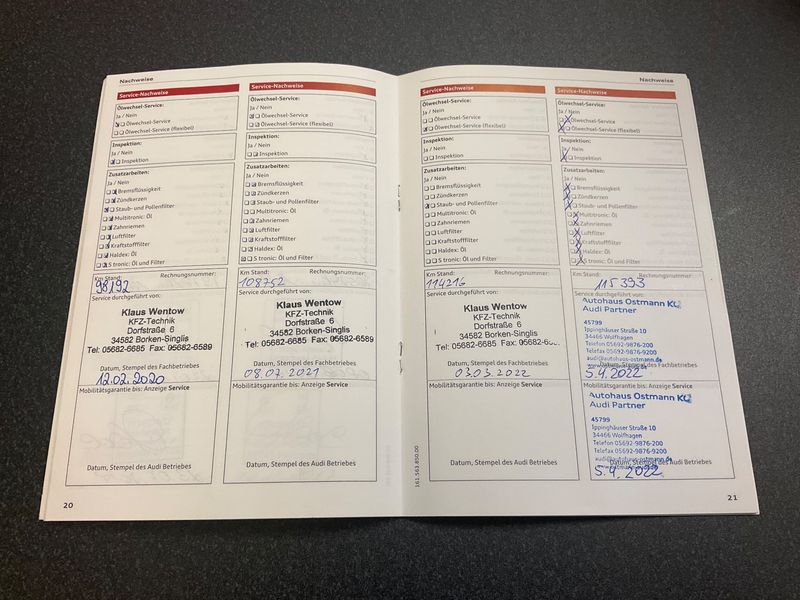 Nachweise
Service-Nachweise
Ölwechsel-Service:
Ja / Nein
Ölwechsel-Service
Ölwechsel-Service (flexibel)
Inspektion:
Ja / Nein
Inspektion
Zusatzarbeiten:
Ja / Nein
Bremsflüssigkeit
Zündkerzen
Staub- und Pollenfilter
Multitronic: Öl
Zahnriemen
Luftfilter
Kraftstofffilter
Haldex: Öl
S tronic: Öl und Filter
Km Stand: Rechnungsnummer:
98192
Service durchgeführt von:
Klaus Wentow
KFZ-Technik
Dorfstraße 6
34582 Borken-Singlis
Tel: 05682-6685 Fax: 05682-6589
Datum, Stempel des Fachbetriebes
12.02.2020
Mobilitätsgarantie bis: Anzeige Service
Datum, Stempel des Audi Betriebes
20
Service-Nachweise
Ölwechsel-Service:
Ja / Nein
Ölwechsel-Service
Ölwechsel-Service (flexibel)
Inspektion:
Ja / Nein
Inspektion
Zusatzarbeiten:
Ja / Nein
Bremsflüssigkeit
Zündkerzen
Staub- und Pollenfilter
Multitronic: Öl
Zahnriemen
Luftfilter
Kraftstofffilter
Haldex: Öl
S tronic: Öl und Filter
Km Stand: Rechnungsnummer:
108752
Service durchgeführt von:
Klaus Wentow
KFZ-Technik
Dorfstraße 6
34582 Borken-Singlis
Tel: 05682-6685 Fax: 05682-6589
Datum, Stempel des Fachbetriebes
08.07.2021
Mobilitätsgarantie bis: Anzeige Service
Datum, Stempel des Audi Betriebes
Nachweise
Service-Nachweise
Ölwechsel-Service:
Ja / Nein
Ölwechsel-Service
Ölwechsel-Service (flexibel)
Inspektion:
Ja / Nein
Inspektion
Zusatzarbeiten:
Ja / Nein
Bremsflüssigkeit
Zündkerzen
Staub- und Pollenfilter
Multitronic: Öl
Zahnriemen
Luftfilter
Kraftstofffilter
Haldex: Öl
S tronic: Öl und Filter
Km Stand: Rechnungsnummer:
114216
Service durchgeführt von:
Klaus Wentow
KFZ-Technik
Dorfstraße 6
34582 Borken-Singlis
Tel: 05682-6685 Fax: 05682-6
Datum, Stempel des Fachbetriebes
03.03.2022
Mobilitätsgarantie bis: Anzeige Service
Datum, Stempel des Audi Betriebes
161.563.850.00
Service-Nachweise
Ölwechsel-Service:
Ja / Nein
Ölwechsel-Service
Ölwechsel-Service (flexibel)
Inspektion:
Ja / Nein
Inspektion
Zusatzarbeiten:
Ja / Nein
Bremsflüssigkeit
Zündkerzen
Staub- und Pollenfilter
Multitronic: Öl
Zahnriemen
Luftfilter
Kraftstofffilter
Haldex: Öl
S tronic: Öl und Filter
Km Stand: Rechnungsnummer:
115393
Service durchgeführt von:
Autohaus Ostmann KG
Audi Partner
45799
Ippinghäuser Straße 10
34466 Wolfhagen
Telefon 05692-9876-200
Telefax 05692-9876-9200
audi@autohaus-ostmann.de
Datum, Stempel des Fachbetriebes
5.4.2022
Mobilitätsgarantie bis: Anzeige Service
Autohaus Ostmann KG
Audi Partner
45799
Ippinghäuser Straße 10
34466 Wolfhagen
Telefon 05692-9876-200
Telefax 05692-9876-9200
audi@autohaus-ostmann.de
Datum, Stempel des Audi Betriebes
5.4.2022
21